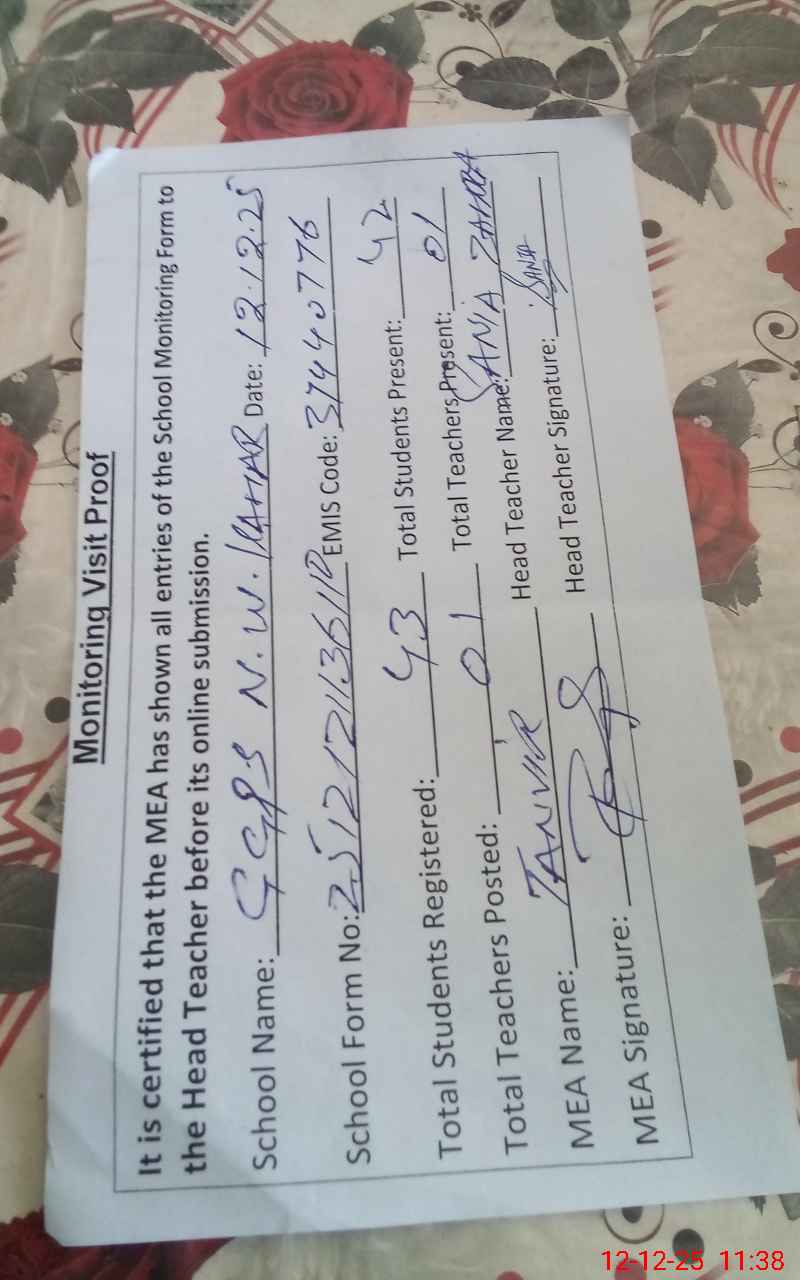 Monitoring Visit Proof
It is certified that the MEA has shown all entries of the School Monitoring Form to
the Head Teacher before its online submission.
School Name: GGPS N.W. KAHAR Date: 12.12.25
School Form No: EMIS Code: 37440776
Total Students Registered: 43 Total Students Present: 42
Total Teachers Posted: 01 Total Teachers Present: 01
MEA Name: TANVIR Head Teacher Name: SANIA ZAHRA
MEA Signature: Head Teacher Signature: SANIA
12-12-25 11:38